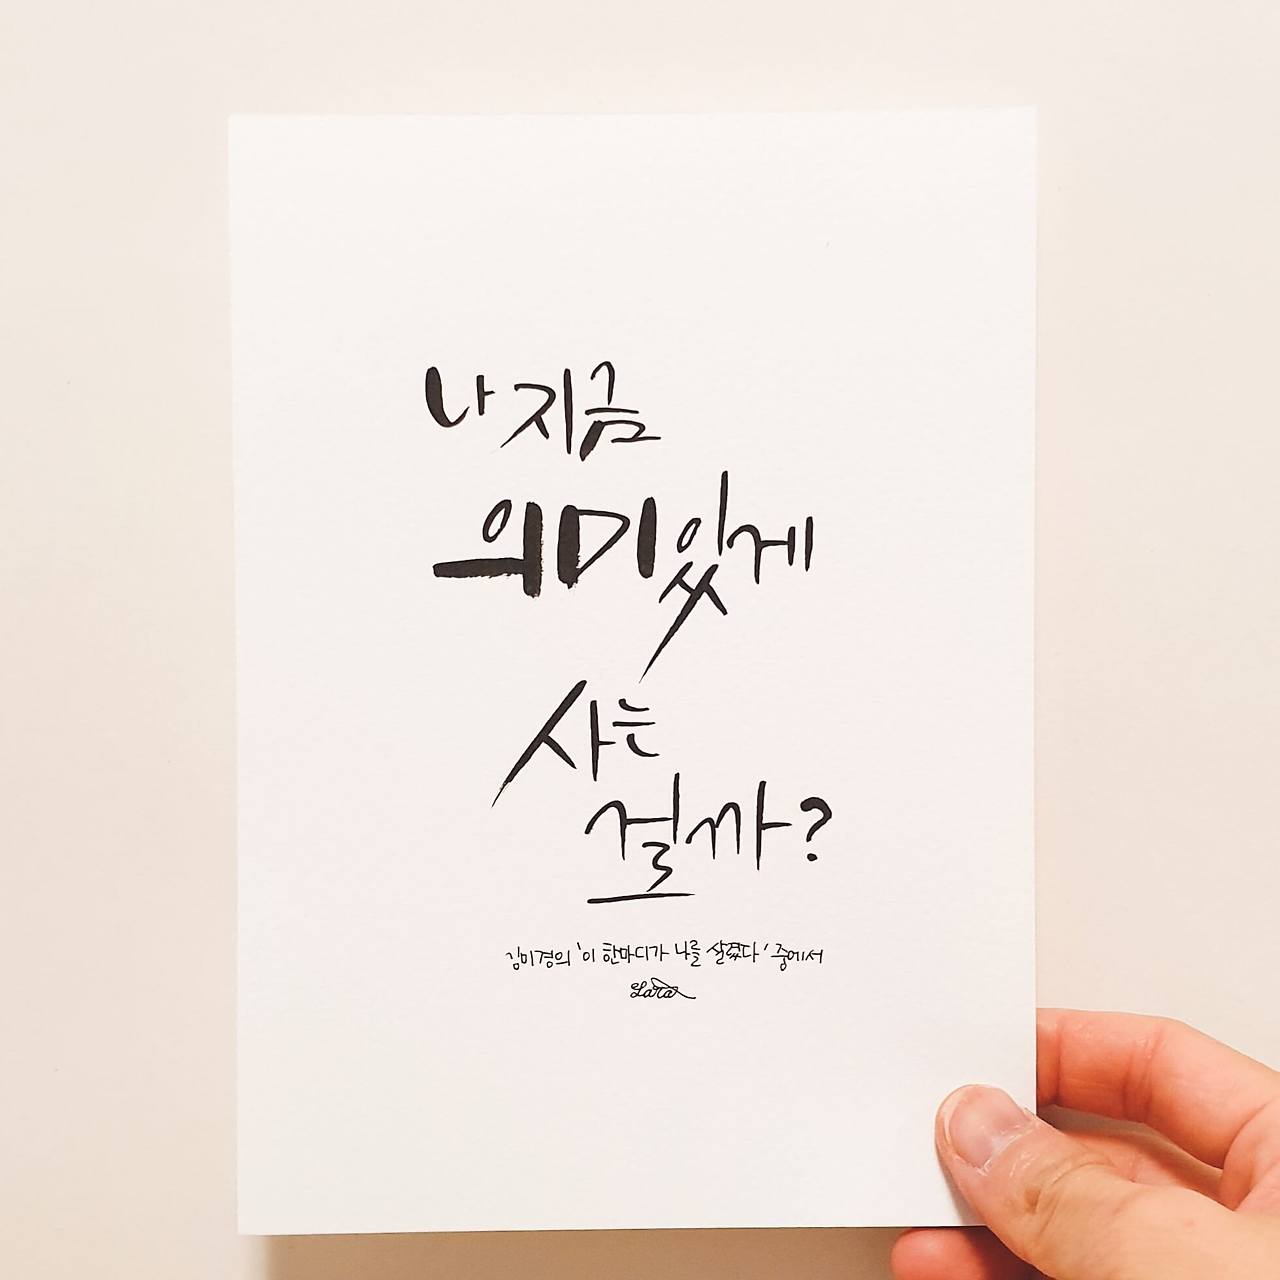 나 지금
의미있게
사는
걸까?
김미경의 '이 한마디가 나를 살렸다' 중에서
Lara